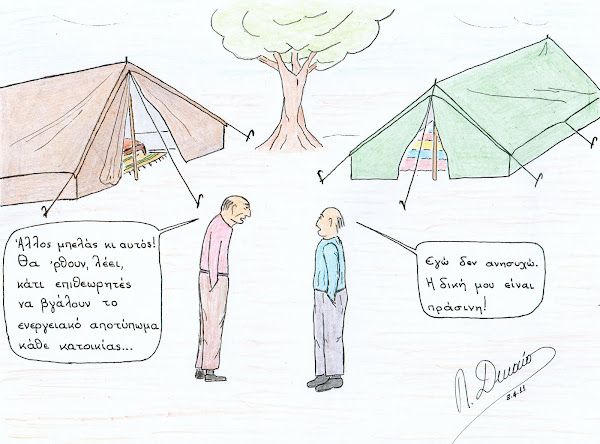 Άλλος μπελάς κι αυτός!
Θα 'ρθουν, λέει,
κάτι επιθεωρητές
να βγάλουν το
ενεργειακό αποτύπωμα
κάθε κατοικίας...
Εγώ δεν ανησυχώ.
Η δική μου είναι
πράσινη!
8.4.11